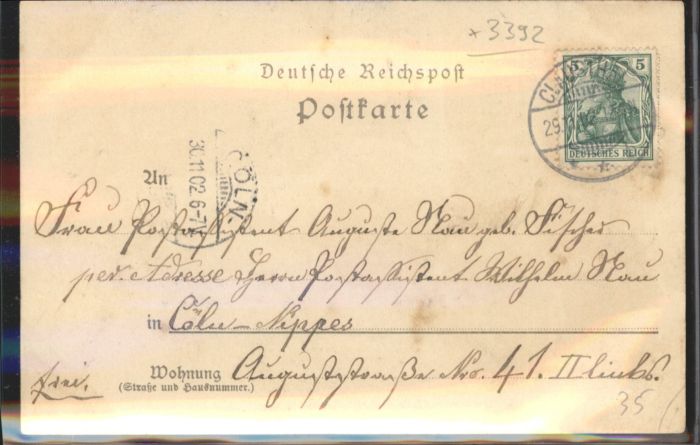 *3392
Deutsche Reichspost
Postkarte
5 5
DEUTSCHES REICH
CÖLN
30.11.02 6-7
An
Frau Postassistent Auguste Nau geb. Fischer
per. Adresse Herrn Postassistent Wilhelm Nau
in Cöln-Nippes
Wohnung Auguststraße Nro. 41. II links.
(Straße und Hausnummer.)
frei.
35